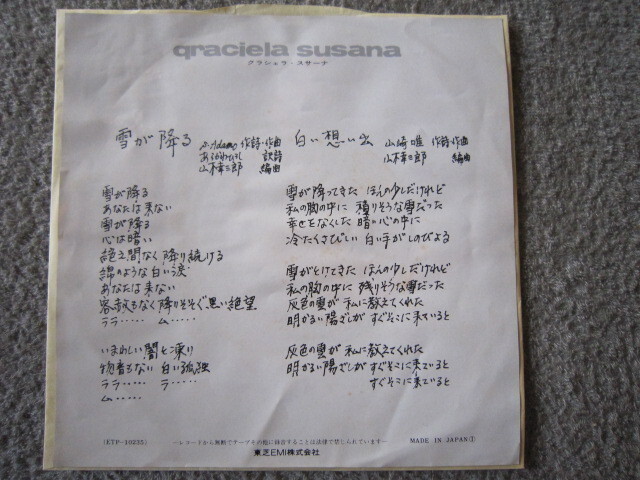 graciela susana
グラシェラ・スサーナ
雪が降る
S.Adamo 作詩・作曲
あらかわひろし 訳詩
山木幸三郎 編曲
雪が降る
あなたは来ない
雪が降る
心は暗い
絶え間なく降り続ける
綿のような白い涙
あなたは来ない
容赦もなく降りそそぐ黒い絶望
ララ…… ム……
いまわしい闇と凍り
物音もない 白い孤独
ララ…… ラ……
ム……
白い想い出
山崎唯 作詩・作曲
山木幸三郎 編曲
雪が降ってきた ほんの少しだけれど
私の胸の中に 積りそうな雪だった
幸せをなくした 暗い心の中に
冷たくさびしい 白い手がしのびよる
雪がとけてきた ほんの少しだけれど
私の胸の中に 残りそうな雪だった
灰色の雲が 私に教えてくれた
明かるい陽ざしが すぐそこに来ていると
灰色の雲が 私に教えてくれた
明かるい陽ざしが すぐそこに来ていると
すぐそこに来ていると
(ETP-10255)
―レコードから無断でテープその他に録音することは法律で禁じられています―
MADE IN JAPAN①
東芝EMI株式会社